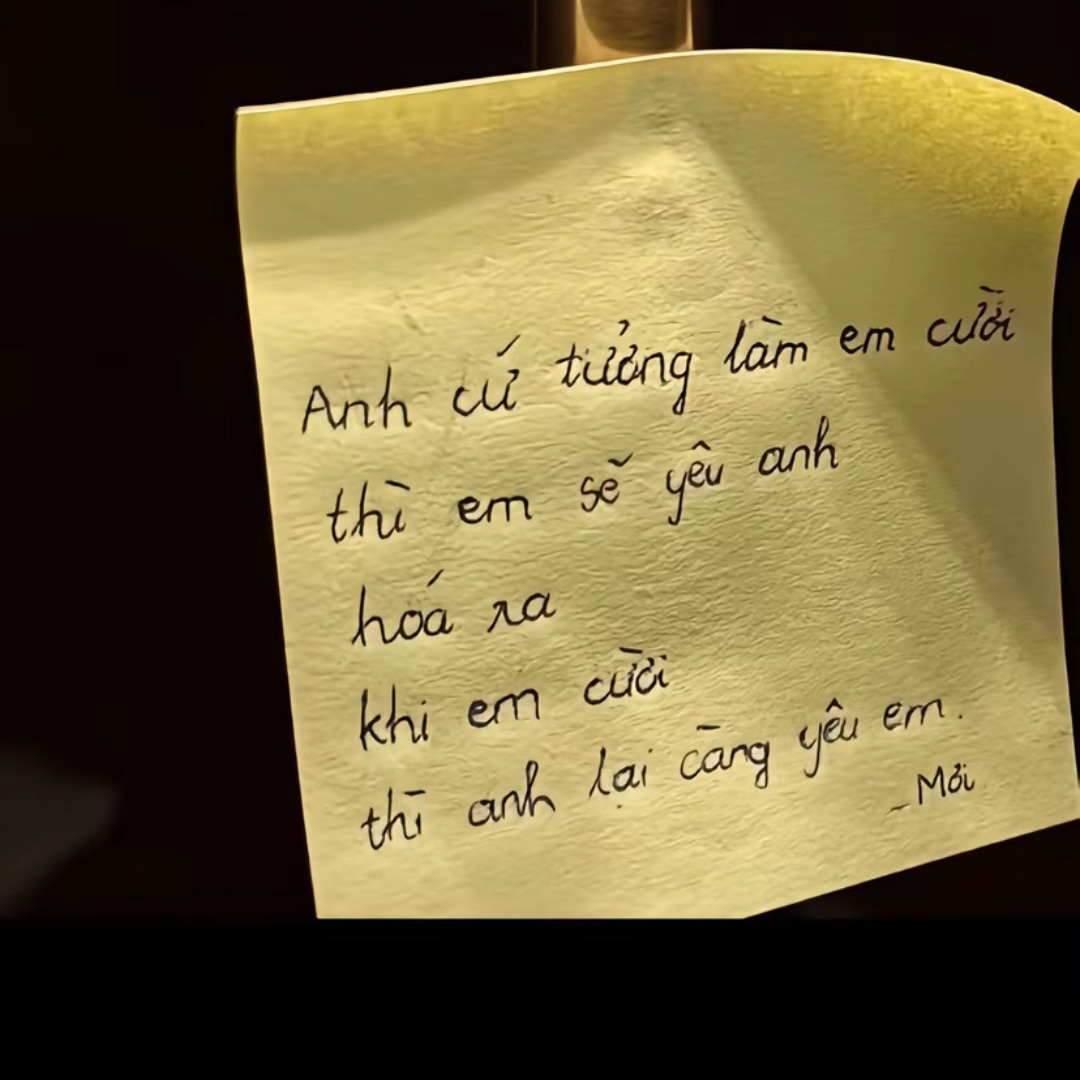 Anh cứ tưởng làm em cười
thì em sẽ yêu anh
hoá ra
khi em cười
thì anh lại càng yêu em.
_ Mỏi